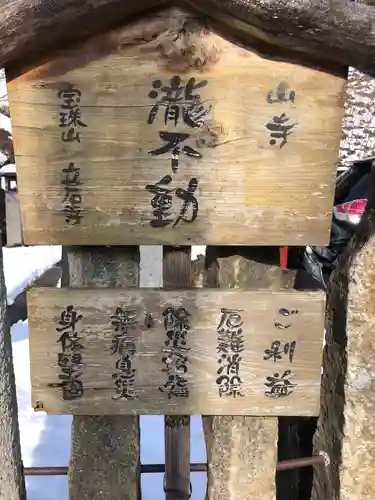 山寺
瀧不動
宝珠山 立石寺
ご利益
厄難消除
除災招福
無病息災
身體健全